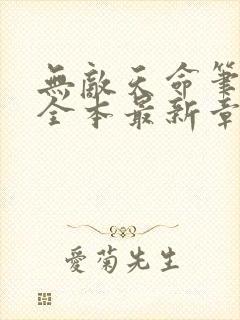 無敵天命筆
全本最新章
愛菊先生